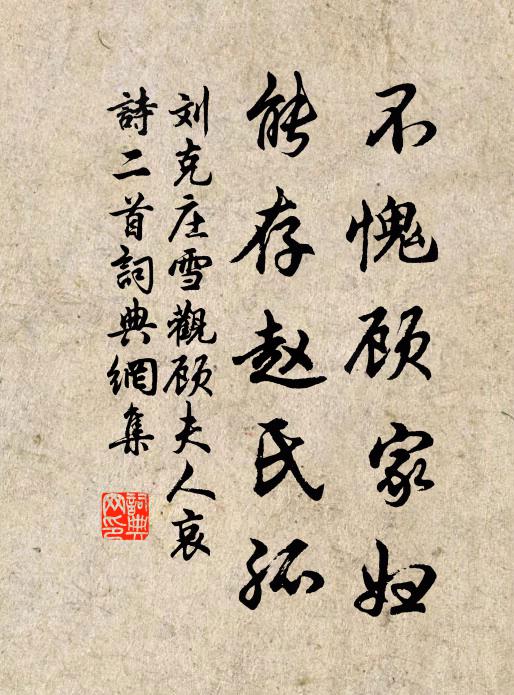 不愧顾家妇
能存赵氏孤
刘克庄雪觀顾夫人哀
詩二首詞典網集
詞典
网印